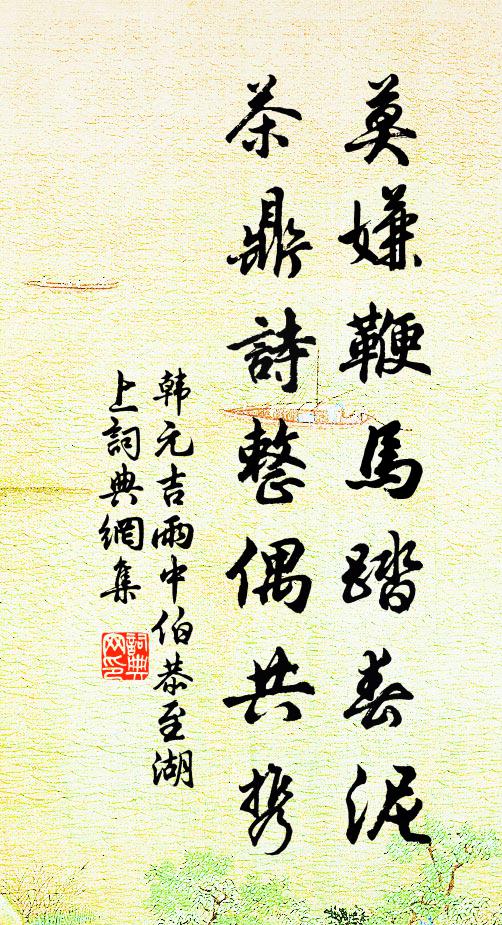 莫嫌鞭馬踏春泥
茶鼎詩整偶共携
韩元吉雨中伯恭至湖
上詞典網集
詞典网印